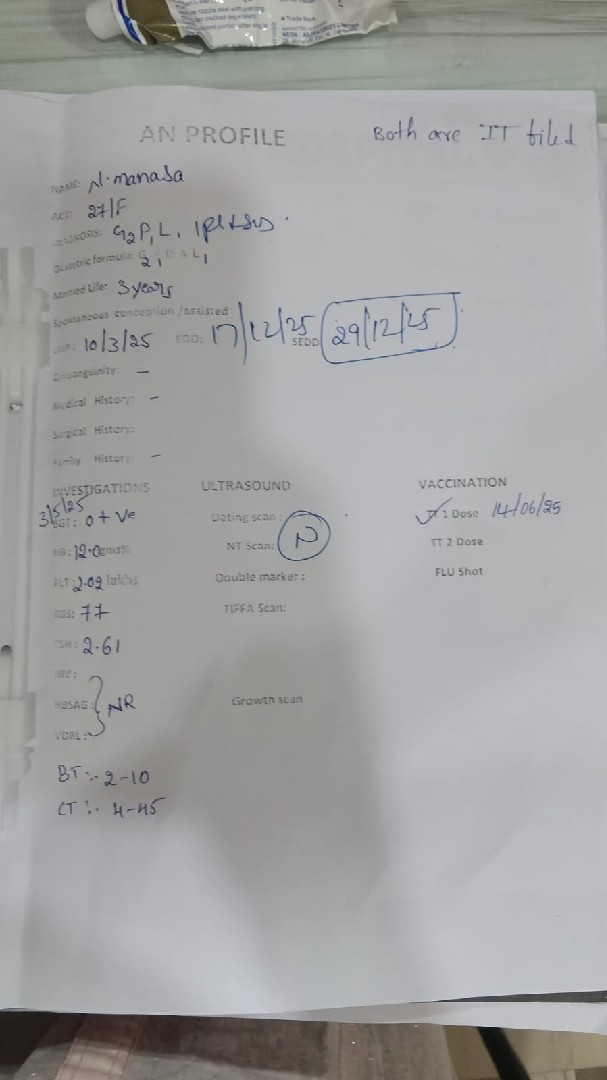 AN PROFILE
Both are IT filed
NAME: N. manasa
AGE: 27/F
DIAGNOSIS: G2 P1 L1
Obstetric formula: G2
Married Life: 3 years
Spontaneous conception /assisted
LMP: 10/3/25 EDD: 17/12/25 SEDD 29/12/25
Consanguinity: -
Medical History: -
Surgical History:
Family History: -
INVESTIGATIONS ULTRASOUND VACCINATION
3/5/25
BGT: O + ve Dating scan: TT 1 Dose 14/06/25
HB: 12.0gms% NT Scan: N TT 2 Dose
PLT: 2.02 lakhs Double marker: FLU Shot
RBS: 77 TIFFA Scan:
TSH: 2.61
HIV:
HBSAG: NR Growth scan
VDRL:
BT:- 2-10
CT:- 4-45